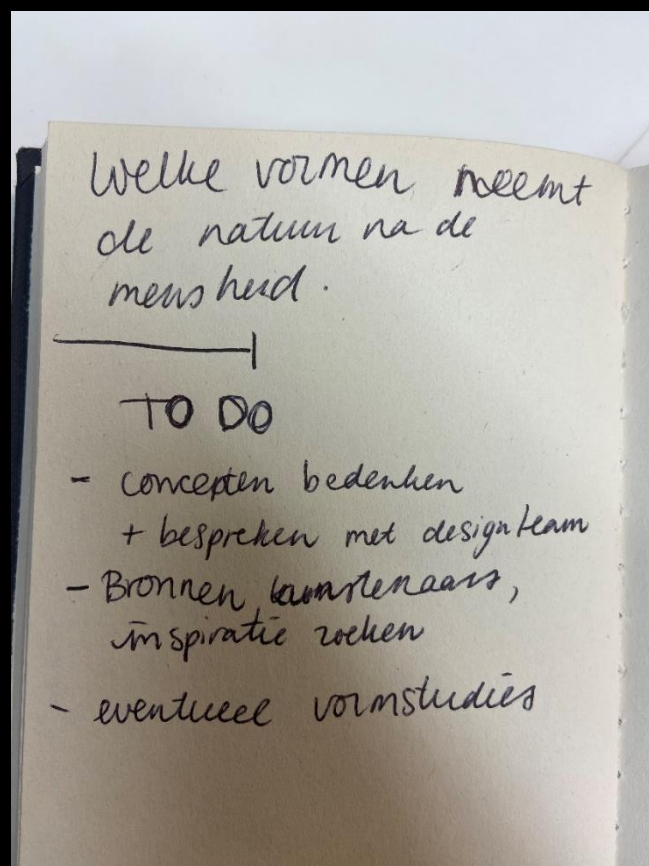 Welke vormen neemt
de natuur na de
mensheid.
TO DO
- concepten bedenken
+ bespreken met designteam
- Bronnen kunstenaars,
inspiratie zoeken
- eventueel vormstudies